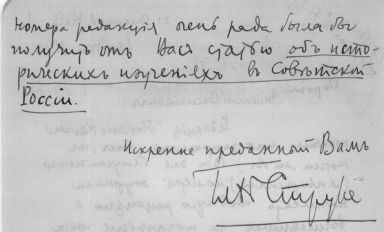 номера редакція очень рада была бы
получить отъ Васъ статью объ исто-
рическихъ изученіяхъ въ Совѣтской
Россіи.
Искренне преданной Вамъ
Струве